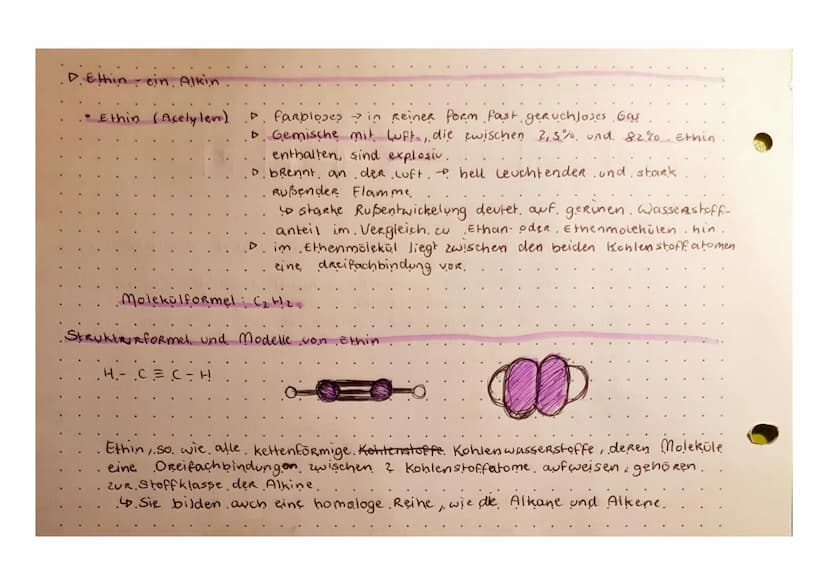 ▷ Ethin - ein Alkin
• Ethin (Acelylen) ▷ farbloses → in reiner Form fast geruchloses Gas
▷ Gemische mit Luft, die zwischen 2,3% und 82% Ethin
enthalten, sind explosiv.
▷ brennt an der Luft → hell leuchtender und stark
rußender Flamme
↳ starke Rußentwickelung deutet auf gerinen Wasserstoff-
anteil im Vergleich zu Ethan- oder Ethenmolekülen hin.
▷ im Ethenmolekül liegt zwischen den beiden Kohlenstoffatomen
eine dreifachbindung vor.
Molekülformel: C₂H₂
Strukturformel und Modelle von Ethin
H - C ≡ C - H
Ethin, so wie alle kettenförmige Kohlenstoffe Kohlenwasserstoffe, deren Moleküle
eine Dreifachbindungen zwischen 2 Kohlenstoffatome aufweisen, gehören
zur Stoffklasse der Alkine.
↳ Sie bilden auch eine homologe Reihe, wie die Alkane und Alkene.